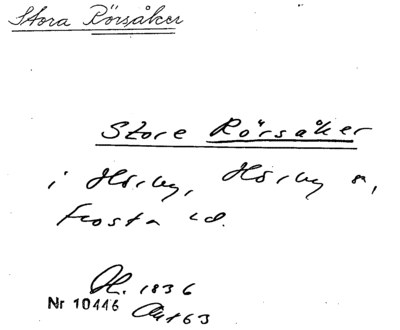 Stora Rörsåker
Store Rörsåker
i Hörby, Hörby s,
Frosta hd.
1836
Nr 10446 Akt 63